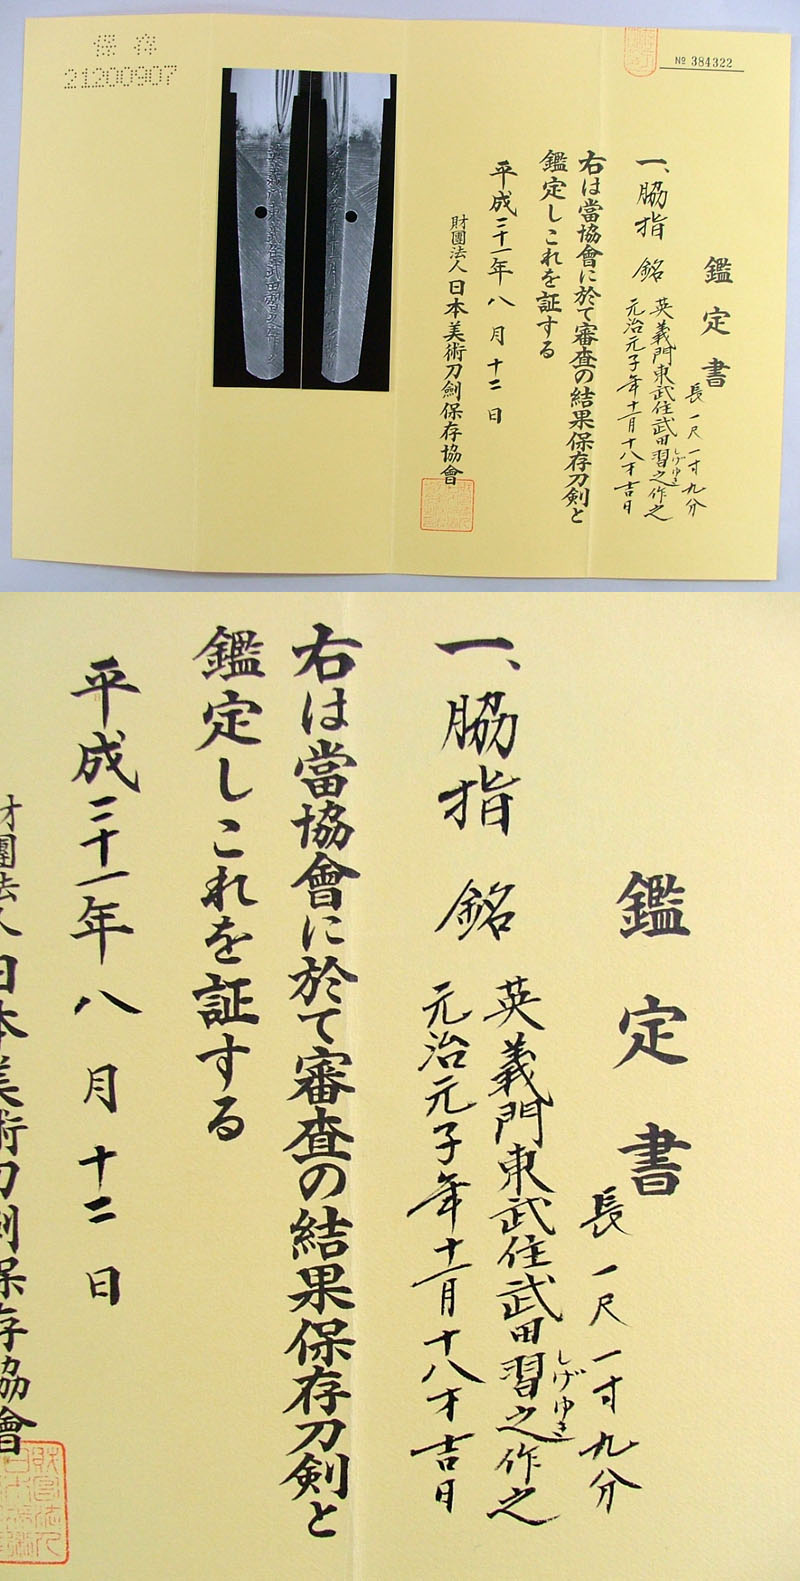 保存
21200907
№ 384322
鑑定書
一、脇指 銘
長一尺一寸九分
英義門東武住武田習之作之
しげゆき
元治元子年十一月十八才吉日
右は當協會に於て審査の結果保存刀剣と
鑑定しこれを証する
平成二十一年八月十二日
財團法人日本美術刀劍保存協會
鑑定書
長一尺一寸九分
一、脇指 銘
英義門東武住武田習之作之
しげゆき
元治元子年十一月十八才吉日
右は當協會に於て審査の結果保存刀剣と
鑑定しこれを証する
平成二十一年八月十二日
財團法人日本美術刀劍保存協會